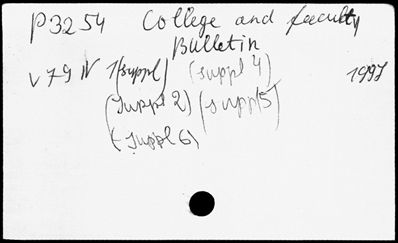 P3254 College and faculty
Bulletin
v 79 N 1(suppl) (suppl 4) 1997
(suppl 2) (suppl 5)
(suppl 6)